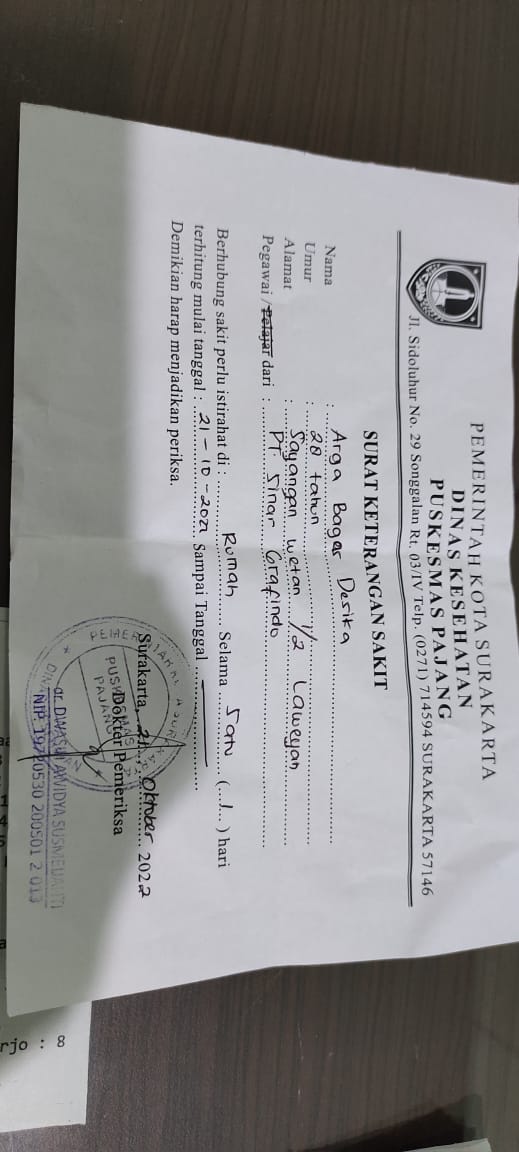 PEMERINTAH KOTA SURAKARTA
DINAS KESEHATAN
PUSKESMAS PAJANG
Jl. Sidoluhur No. 29 Songgalan Rt. 03/IV Telp. (0271) 714594 SURAKARTA 57146
SURAT KETERANGAN SAKIT
Nama : Arga Bagas Desika
Umur : 28 tahun
Alamat : Sayangan wetan 1/2 Laweyan
Pegawai / Pelajar dari : PT. Sinar Grafindo
Berhubung sakit perlu istirahat di : Rumah Selama Satu (...1...) hari
terhitung mulai tanggal : 21-10-2022 Sampai Tanggal
Demikian harap menjadikan periksa.
Surakarta, 21 Oktober 2022
Dokter Pemeriksa
PUSKESMAS
PAJANG
NIP. 19720530 200501 2 013
rjo : 8